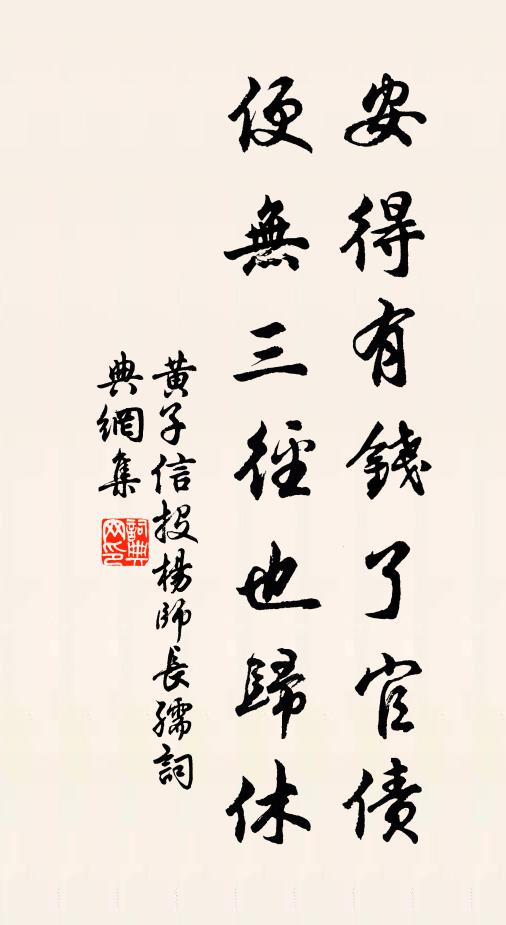 安得有錢了官債
便無三徑也歸休
黃子信投楊師長孺詞
典網集
詞典網印